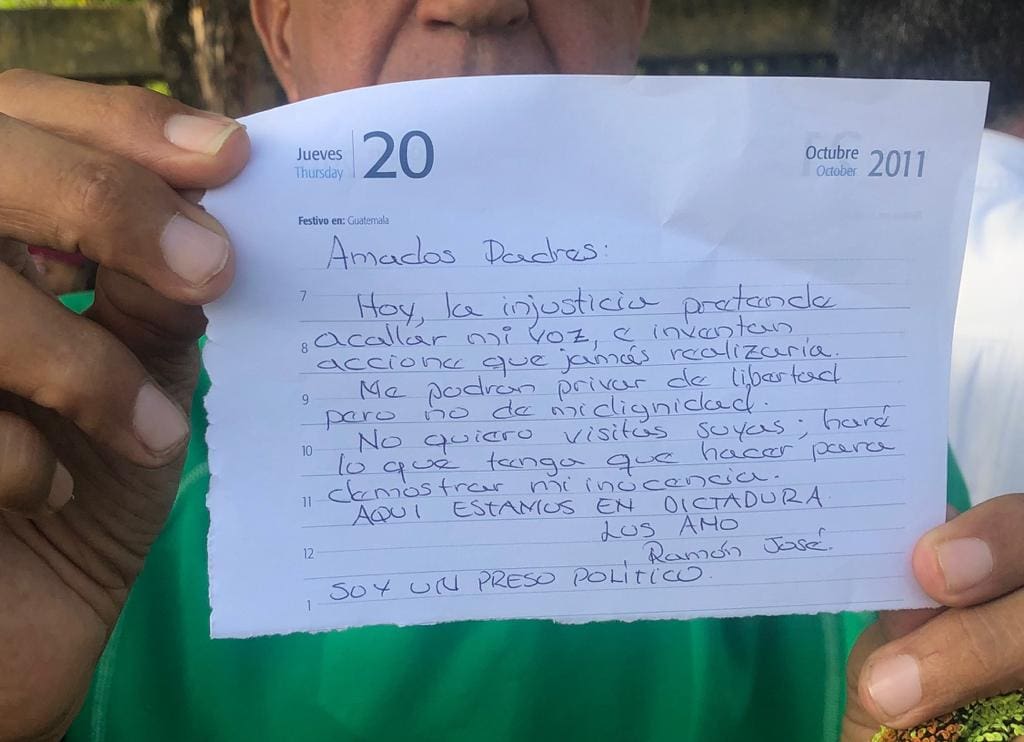 Jueves 20 Octubre 2011
Thursday October
Festivo en: Guatemala
Amados Padres:
7 Hoy, la injusticia pretende
8 acallar mi voz, e inventan
accione que jamás realizaría.
9 Me podran privar de libertad
pero no de mi dignidad.
10 No quiero visitas suyas; haré
lo que tenga que hacer para
11 demostrar mi inocencia.
AQUI ESTAMOS EN DICTADURA
LOS AMO
12 Ramón José.
SOY UN PRESO POLÍTICO.
1